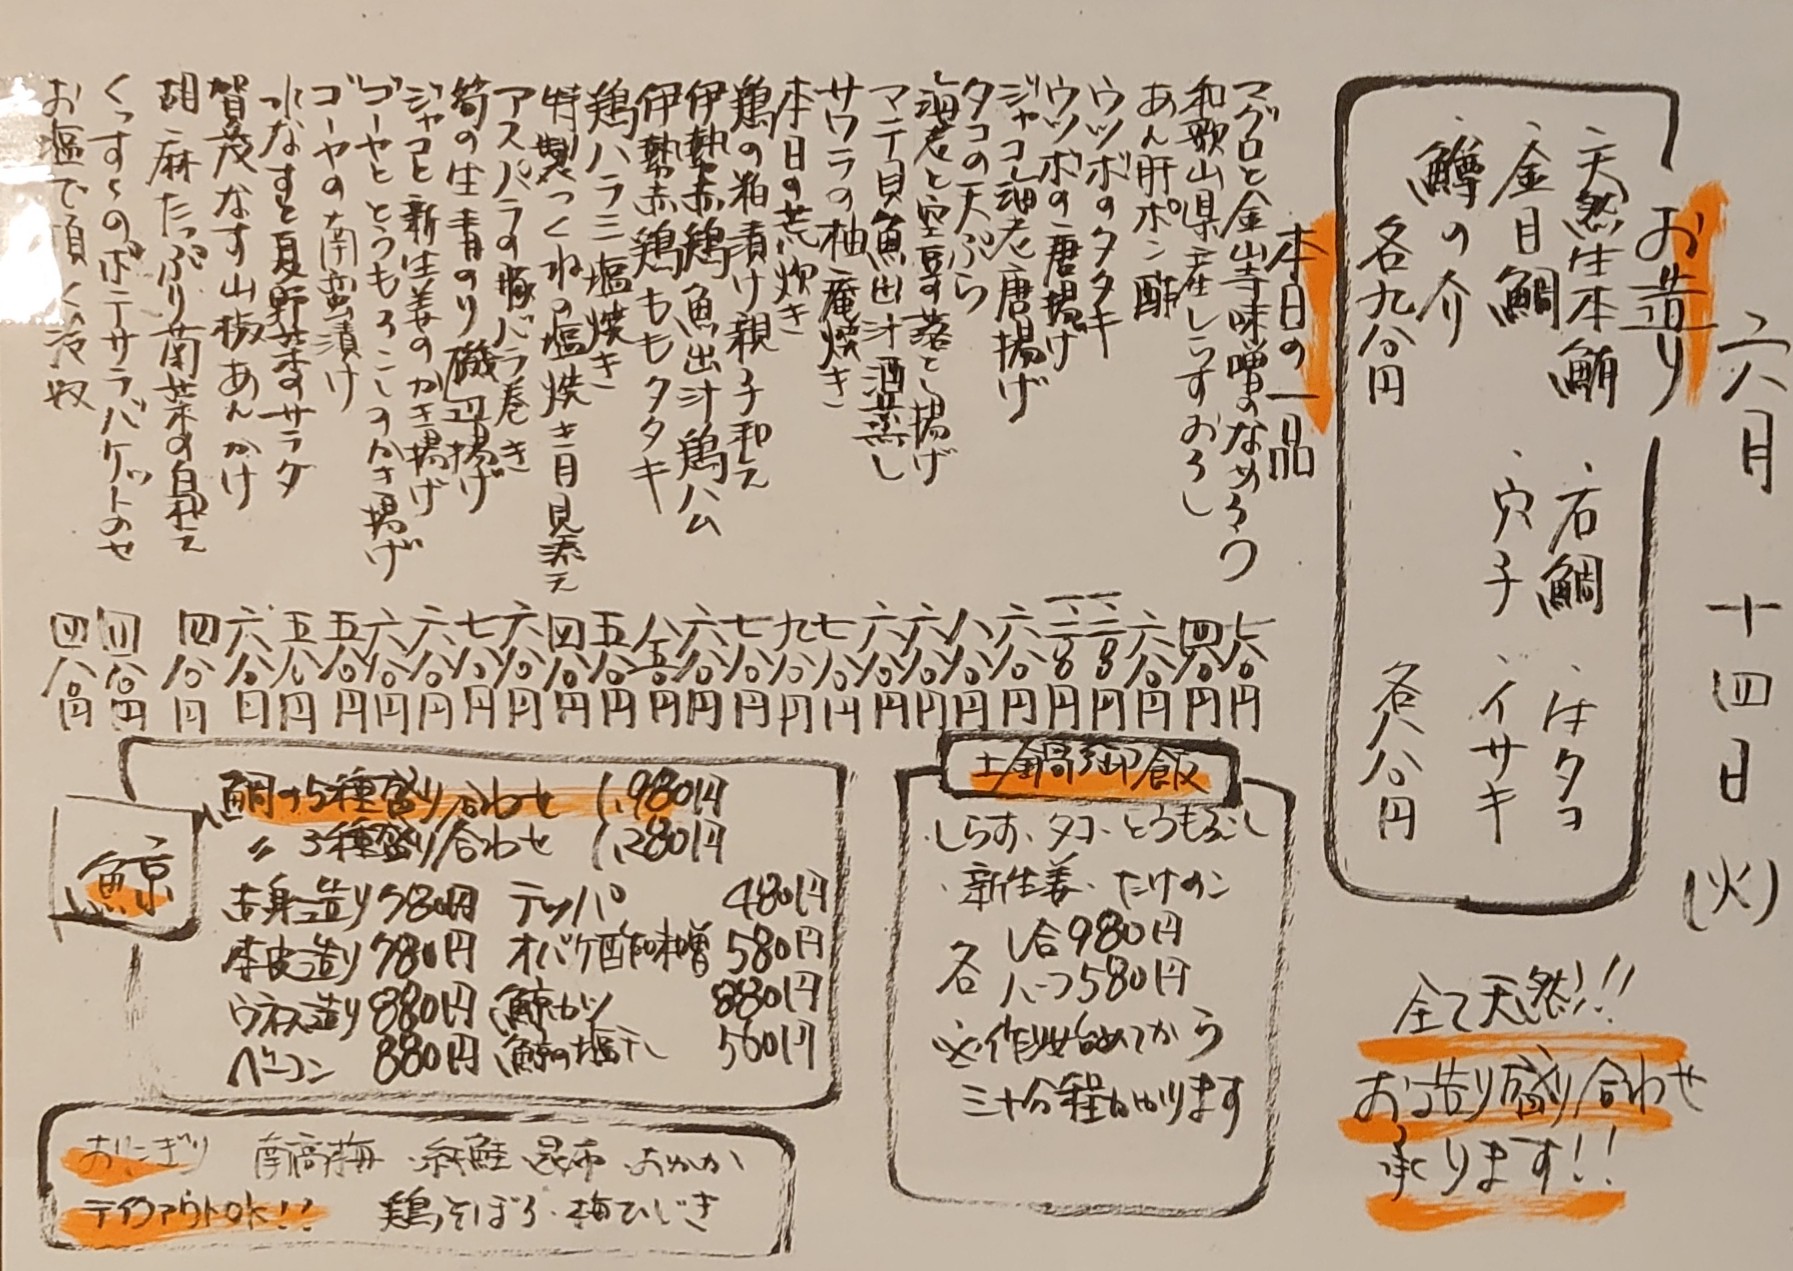 六月 十四日 (火)
お造り
・天然生本鮪 ・石鯛 ・活タコ
・金目鯛 ・穴子 ・イサキ
・鱒の介
各九八〇円 各八八〇円
全て天然!!
お造り盛り合わせ
承ります!!
本日の一品
マグロと金山寺味噌のなめろう 七八〇円
和歌山県産しらすおろし 四八〇円
あん肝ポン酢 六八〇円
ウツボのタタキ
ウツボの唐揚げ
ジャコ海老唐揚げ 六八〇円
タコの天ぷら 八八〇円
海老と空豆落とし揚げ 六八〇円
マテ貝魚出汁酒蒸し 六八〇円
サワラの柚庵焼き 七八〇円
本日の荒炊き 九八〇円
鶏の粕漬け親子和え 七八〇円
伊勢赤鶏魚出汁鶏ハム 六八〇円
伊勢赤鶏ももタタキ 八五〇円
鶏ハラミ塩焼き 五八〇円
特製つくねの塩焼き月見添え 四八〇円
アスパラの豚バラ巻き 六八〇円
筍の生青のり磯辺揚げ 七八〇円
ジャコと新生姜のかき揚げ 六八〇円
ゴーヤととうもろこしのかき揚げ 六八〇円
ゴーヤの南蛮漬け 五八〇円
水なすと夏野菜のサラダ 五八〇円
賀茂なす山椒あんかけ 六八〇円
胡麻たっぷり菊菜の白和え 四八〇円
くっすんのポテサラバケットのせ 四八〇円
お塩で頂く冷奴 四八〇円
土鍋御飯
・しらす・タコ・とうもろこし
・新生姜・たけのこ
各 一合980円
ハーフ580円
※作り始めてから
三十分程かかります
鯨
鯨の5種盛り合わせ 1,980円
〃 3種盛り合わせ 1,280円
赤身造り 780円 テッパ 480円
本皮造り 780円 オバケ酢味噌 580円
ウネス造り 880円 鯨カツ 880円
ベーコン 880円 鯨の塩干し 560円
おにぎり 南高梅・紅鮭・昆布・おかか
テイクアウトOK!! 鶏そぼろ・梅ひじき